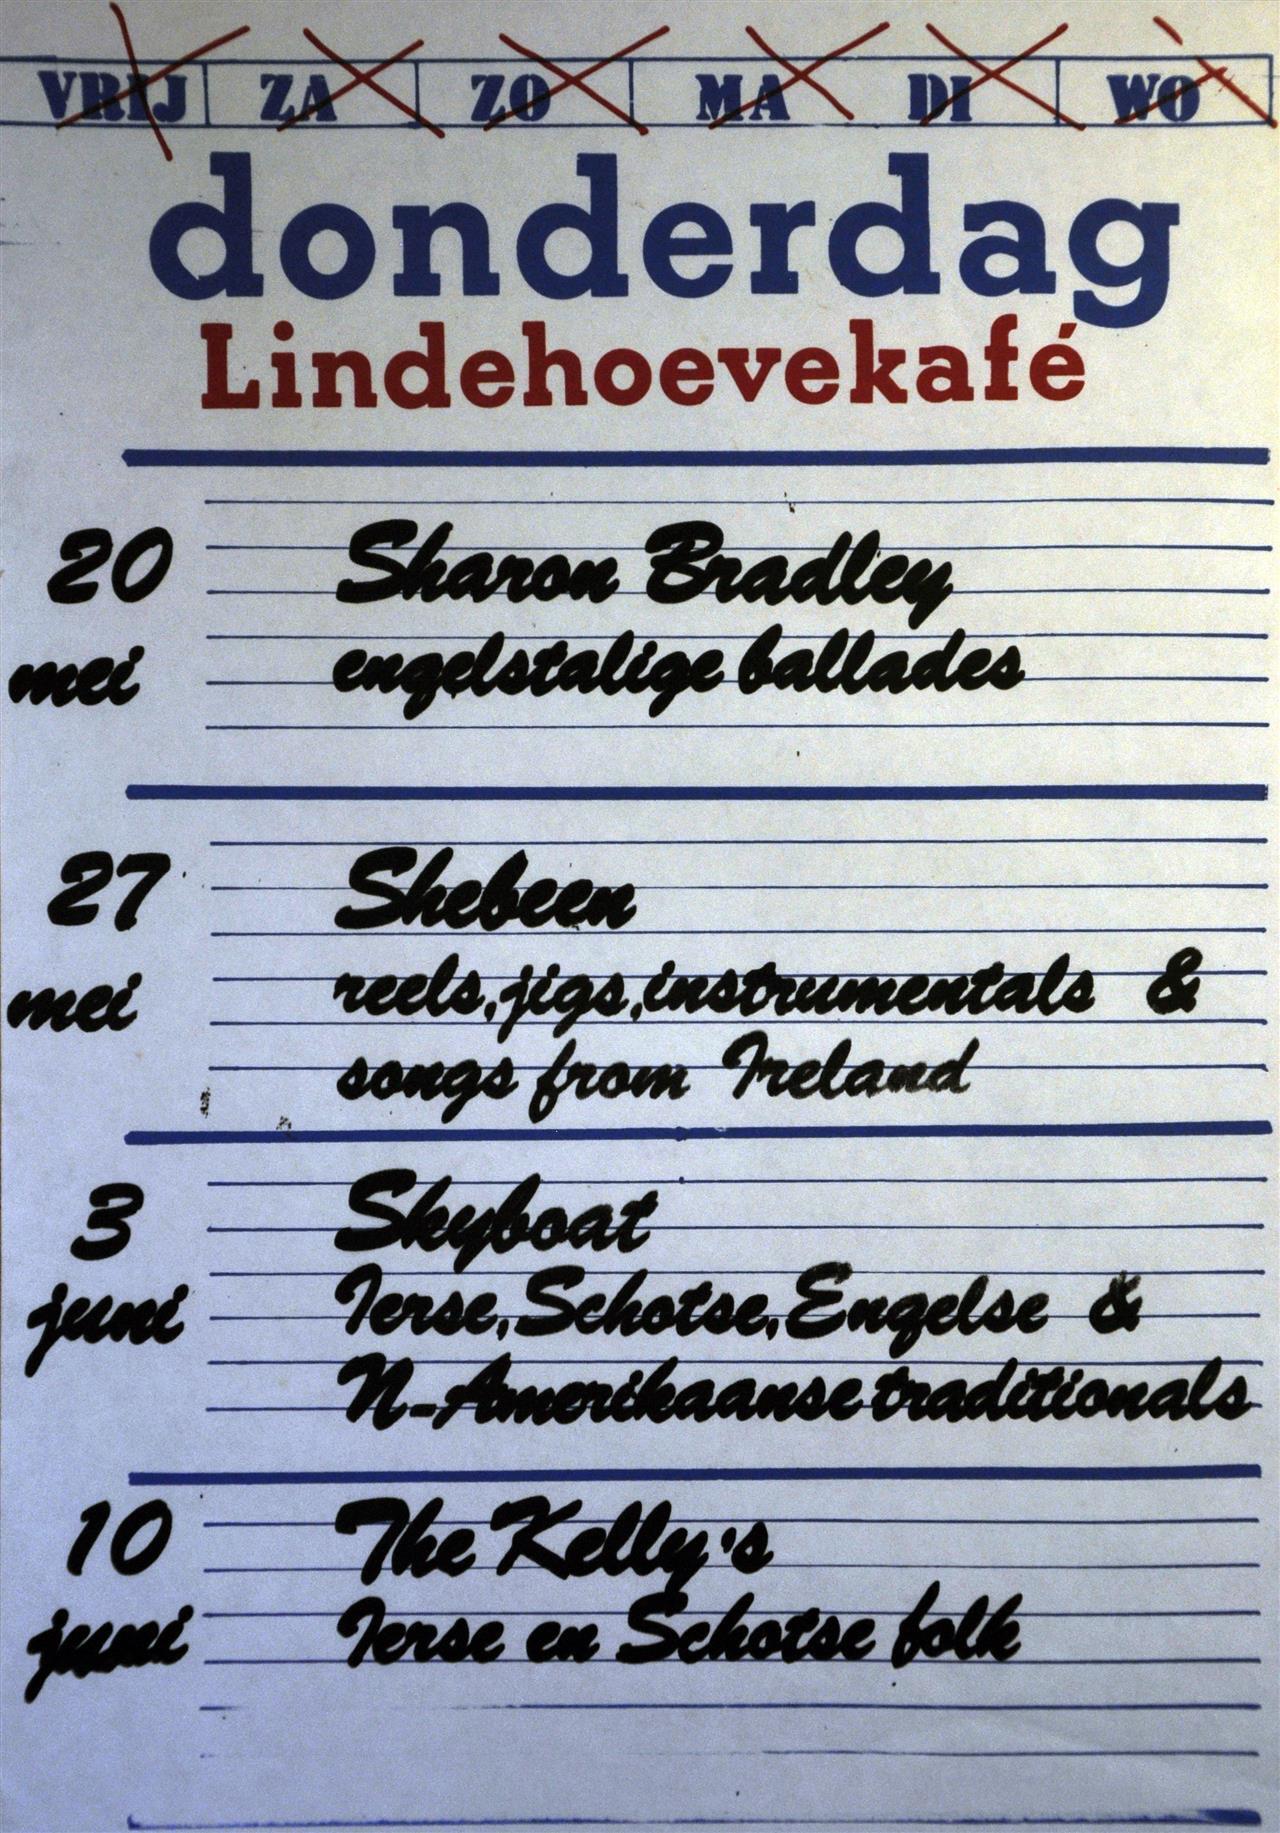 VRIJ ZA ZO MA DI WO
donderdag
Lindehoevekafé
20 Sharon Bradley
mei engelstalige ballades
27 Shebeen
mei reels, jigs, instrumentals &
songs from Ireland
3 Skyboat
juni Ierse, Schotse, Engelse &
N-Amerikaanse traditionals
10 The Kelly's
juni Ierse en Schotse folk